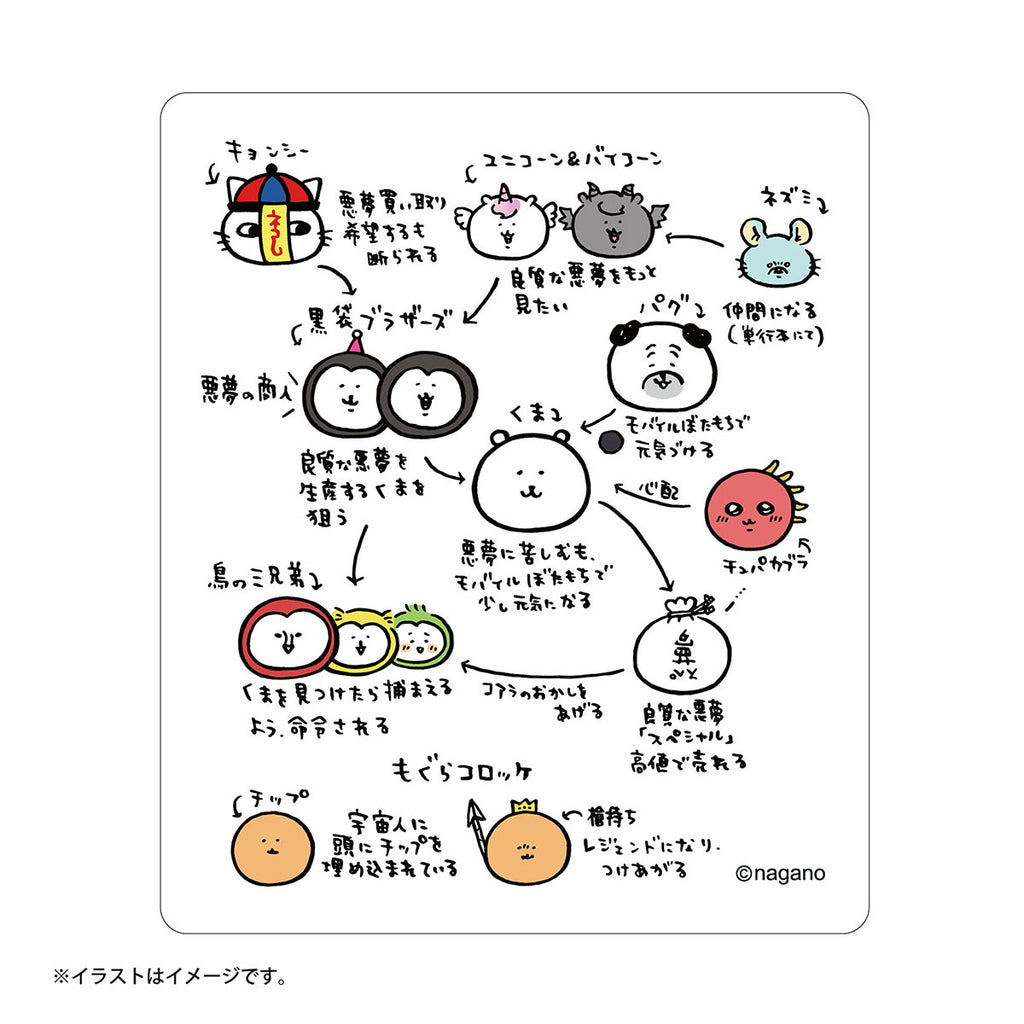 キョンシー
ねろし
悪夢買い取り
希望するも
断られる
ユニコーン&バイコーン
良質な悪夢をもっと
見たい
ネズミ
仲間になる
(単行本にて)
黒袋ブラザーズ
悪夢の商人
良質な悪夢を
生産するくまを
狙う
パグ
モバイルぼたもちで
元気づける
くま
悪夢に苦しむも、
モバイルぼたもちで
少し元気になる
心配
チュパカブラ
鳥の三兄弟
くまを見つけたら捕まえる
よう、命令される
コアラのおかしを
あげる
良質な悪夢
「スペシャル」
高値で売れる
もぐらコロッケ
チップ
宇宙人に
頭にチップを
埋め込まれている
槍持ち
レジェンドになり、
つけあがる
©nagano
※イラストはイメージです。